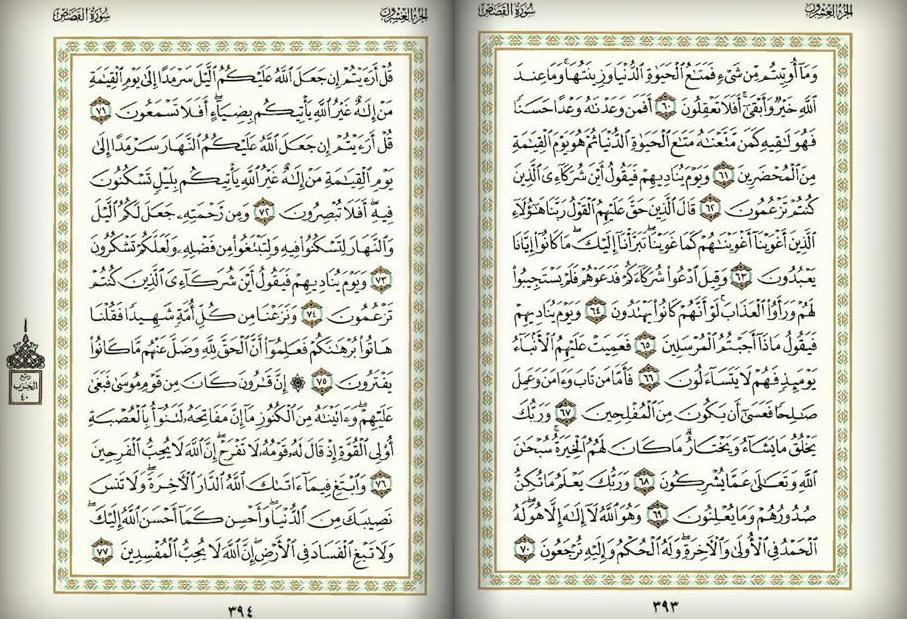 الجزء العشرون
سورة القصص
وَمَآ أُوتِيتُم مِّن شَىْءٍ فَمَتَـٰعُ ٱلْحَيَوٰةِ ٱلدُّنْيَا وَزِينَتُهَا ۚ وَمَا عِندَ
ٱللَّهِ خَيْرٌ وَأَبْقَىٰٓ ۚ أَفَلَا تَعْقِلُونَ ٦٠ أَفَمَن وَعَدْنَـٰهُ وَعْدًا حَسَنًا
فَهُوَ لَـٰقِيهِ كَمَن مَّتَّعْنَـٰهُ مَتَـٰعَ ٱلْحَيَوٰةِ ٱلدُّنْيَا ثُمَّ هُوَ يَوْمَ ٱلْقِيَـٰمَةِ
مِنَ ٱلْمُحْضَرِينَ ٦١ وَيَوْمَ يُنَادِيهِمْ فَيَقُولُ أَيْنَ شُرَكَآءِىَ ٱلَّذِينَ
كُنتُمْ تَزْعُمُونَ ٦٢ قَالَ ٱلَّذِينَ حَقَّ عَلَيْهِمُ ٱلْقَوْلُ رَبَّنَا هَـٰٓؤُلَآءِ
ٱلَّذِينَ أَغْوَيْنَآ أَغْوَيْنَـٰهُمْ كَمَا غَوَيْنَا ۖ تَبَرَّأْنَآ إِلَيْكَ ۖ مَا كَانُوٓا۟ إِيَّانَا
يَعْبُدُونَ ٦٣ وَقِيلَ ٱدْعُوا۟ شُرَكَآءَكُمْ فَدَعَوْهُمْ فَلَمْ يَسْتَجِيبُوا۟
لَهُمْ وَرَأَوُا۟ ٱلْعَذَابَ ۚ لَوْ أَنَّهُمْ كَانُوا۟ يَهْتَدُونَ ٦٤ وَيَوْمَ يُنَادِيهِمْ
فَيَقُولُ مَاذَآ أَجَبْتُمُ ٱلْمُرْسَلِينَ ٦٥ فَعَمِيَتْ عَلَيْهِمُ ٱلْأَنۢبَآءُ
يَوْمَئِذٍ فَهُمْ لَا يَتَسَآءَلُونَ ٦٦ فَأَمَّا مَن تَابَ وَءَامَنَ وَعَمِلَ
صَـٰلِحًا فَعَسَىٰٓ أَن يَكُونَ مِنَ ٱلْمُفْلِحِينَ ٦٧ وَرَبُّكَ
يَخْلُقُ مَا يَشَآءُ وَيَخْتَارُ ۗ مَا كَانَ لَهُمُ ٱلْخِيَرَةُ ۚ سُبْحَـٰنَ
ٱللَّهِ وَتَعَـٰلَىٰ عَمَّا يُشْرِكُونَ ٦٨ وَرَبُّكَ يَعْلَمُ مَا تُكِنُّ
صُدُورُهُمْ وَمَا يُعْلِنُونَ ٦٩ وَهُوَ ٱللَّهُ لَآ إِلَـٰهَ إِلَّا هُوَ ۖ لَهُ
ٱلْحَمْدُ فِى ٱلْأُولَىٰ وَٱلْـَٔاخِرَةِ ۖ وَلَهُ ٱلْحُكْمُ وَإِلَيْهِ تُرْجَعُونَ ٧٠
٣٩٣
الجزء العشرون
سورة القصص
قُلْ أَرَءَيْتُمْ إِن جَعَلَ ٱللَّهُ عَلَيْكُمُ ٱلَّيْلَ سَرْمَدًا إِلَىٰ يَوْمِ ٱلْقِيَـٰمَةِ
مَنْ إِلَـٰهٌ غَيْرُ ٱللَّهِ يَأْتِيكُم بِضِيَآءٍ ۖ أَفَلَا تَسْمَعُونَ ٧١
قُلْ أَرَءَيْتُمْ إِن جَعَلَ ٱللَّهُ عَلَيْكُمُ ٱلنَّهَارَ سَرْمَدًا إِلَىٰ
يَوْمِ ٱلْقِيَـٰمَةِ مَنْ إِلَـٰهٌ غَيْرُ ٱللَّهِ يَأْتِيكُم بِلَيْلٍ تَسْكُنُونَ
فِيهِ ۖ أَفَلَا تُبْصِرُونَ ٧٢ وَمِن رَّحْمَتِهِۦ جَعَلَ لَكُمُ ٱلَّيْلَ
وَٱلنَّهَارَ لِتَسْكُنُوا۟ فِيهِ وَلِتَبْتَغُوا۟ مِن فَضْلِهِۦ وَلَعَلَّكُمْ تَشْكُرُونَ
٧٣ وَيَوْمَ يُنَادِيهِمْ فَيَقُولُ أَيْنَ شُرَكَآءِىَ ٱلَّذِينَ كُنتُمْ
تَزْعُمُونَ ٧٤ وَنَزَعْنَا مِن كُلِّ أُمَّةٍ شَهِيدًا فَقُلْنَا
هَاتُوا۟ بُرْهَـٰنَكُمْ فَعَلِمُوٓا۟ أَنَّ ٱلْحَقَّ لِلَّهِ وَضَلَّ عَنْهُم مَّا كَانُوا۟
يَفْتَرُونَ ٧٥ ۞ إِنَّ قَـٰرُونَ كَانَ مِن قَوْمِ مُوسَىٰ فَبَغَىٰ
عَلَيْهِمْ ۖ وَءَاتَيْنَـٰهُ مِنَ ٱلْكُنُوزِ مَآ إِنَّ مَفَاتِحَهُۥ لَتَنُوٓأُ بِٱلْعُصْبَةِ
أُو۟لِى ٱلْقُوَّةِ إِذْ قَالَ لَهُۥ قَوْمُهُۥ لَا تَفْرَحْ ۖ إِنَّ ٱللَّهَ لَا يُحِبُّ ٱلْفَرِحِينَ
٧٦ وَٱبْتَغِ فِيمَآ ءَاتَىٰكَ ٱللَّهُ ٱلدَّارَ ٱلْـَٔاخِرَةَ ۖ وَلَا تَنسَ
نَصِيبَكَ مِنَ ٱلدُّنْيَا ۖ وَأَحْسِن كَمَآ أَحْسَنَ ٱللَّهُ إِلَيْكَ ۖ
وَلَا تَبْغِ ٱلْفَسَادَ فِى ٱلْأَرْضِ ۖ إِنَّ ٱللَّهَ لَا يُحِبُّ ٱلْمُفْسِدِينَ ٧٧
ربع
الحزب
٤٠
٣٩٤